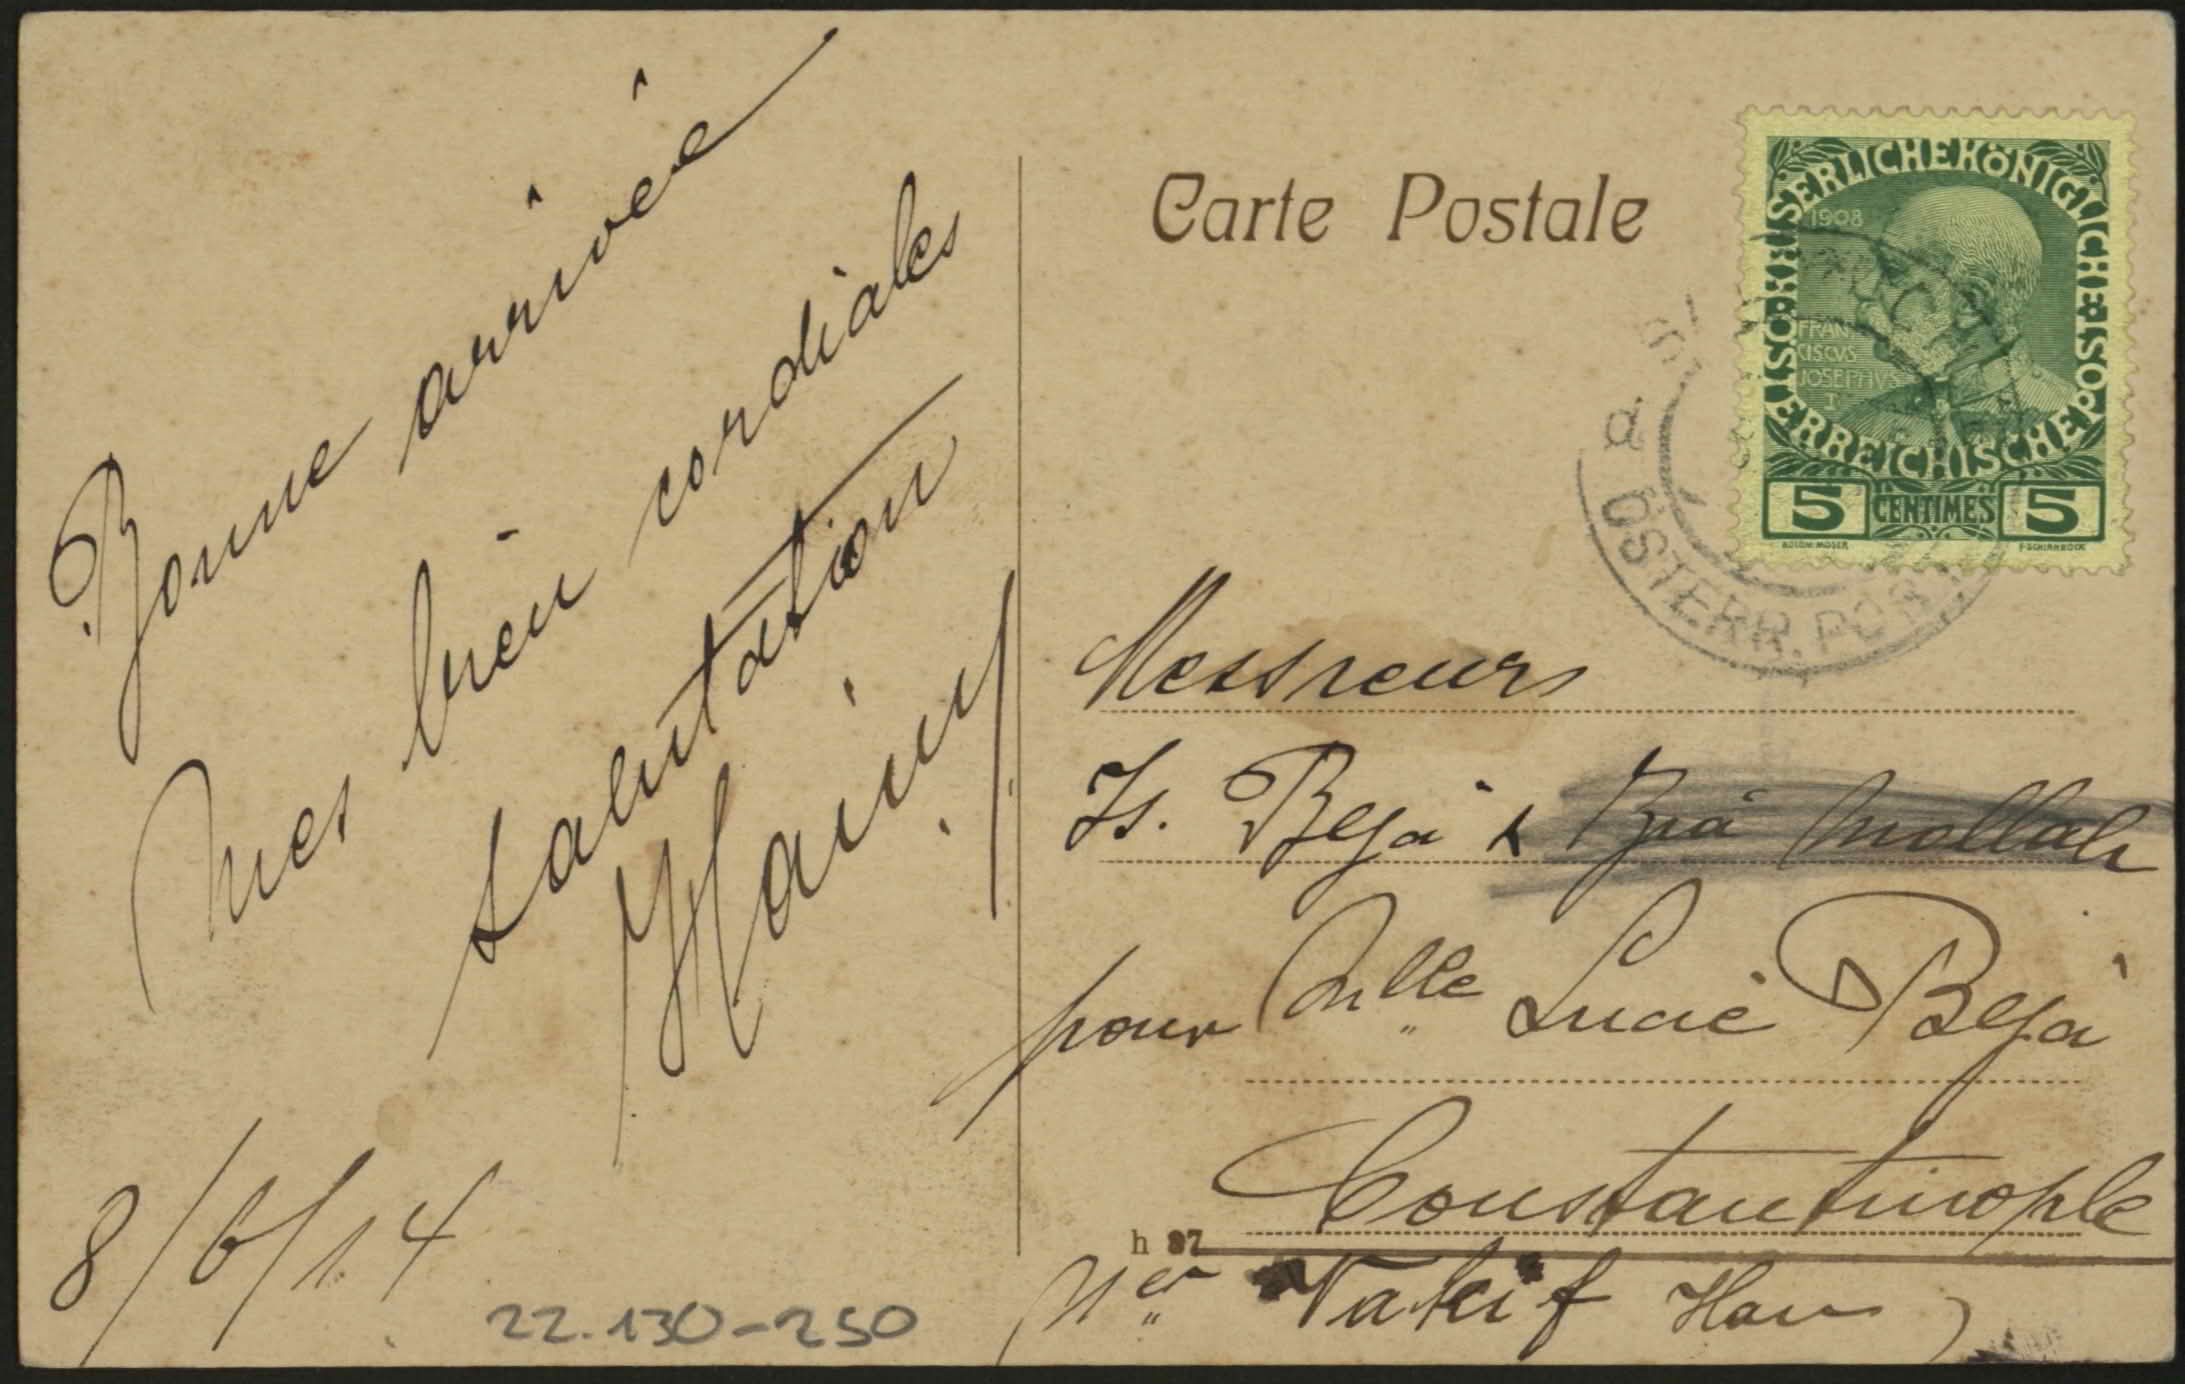 Bonne arrivée
Mes bien cordiales
salutation
Haïm
8/6/14
22.130-250
Carte Postale
KAISERLICHEKÖNIGLICHE
ÖSTERREICHISCHE POST
1908
FRAN
CISCVS
JOSEPHVS
I
5 CENTIMES 5
KOLOM. MOSER
F. SCHIRNBÖCK
a ÖSTERR. POST
Messieurs
Is. Béja &
pour Mlle Lucie Béja
Constantinople
h 87
Vakif Han